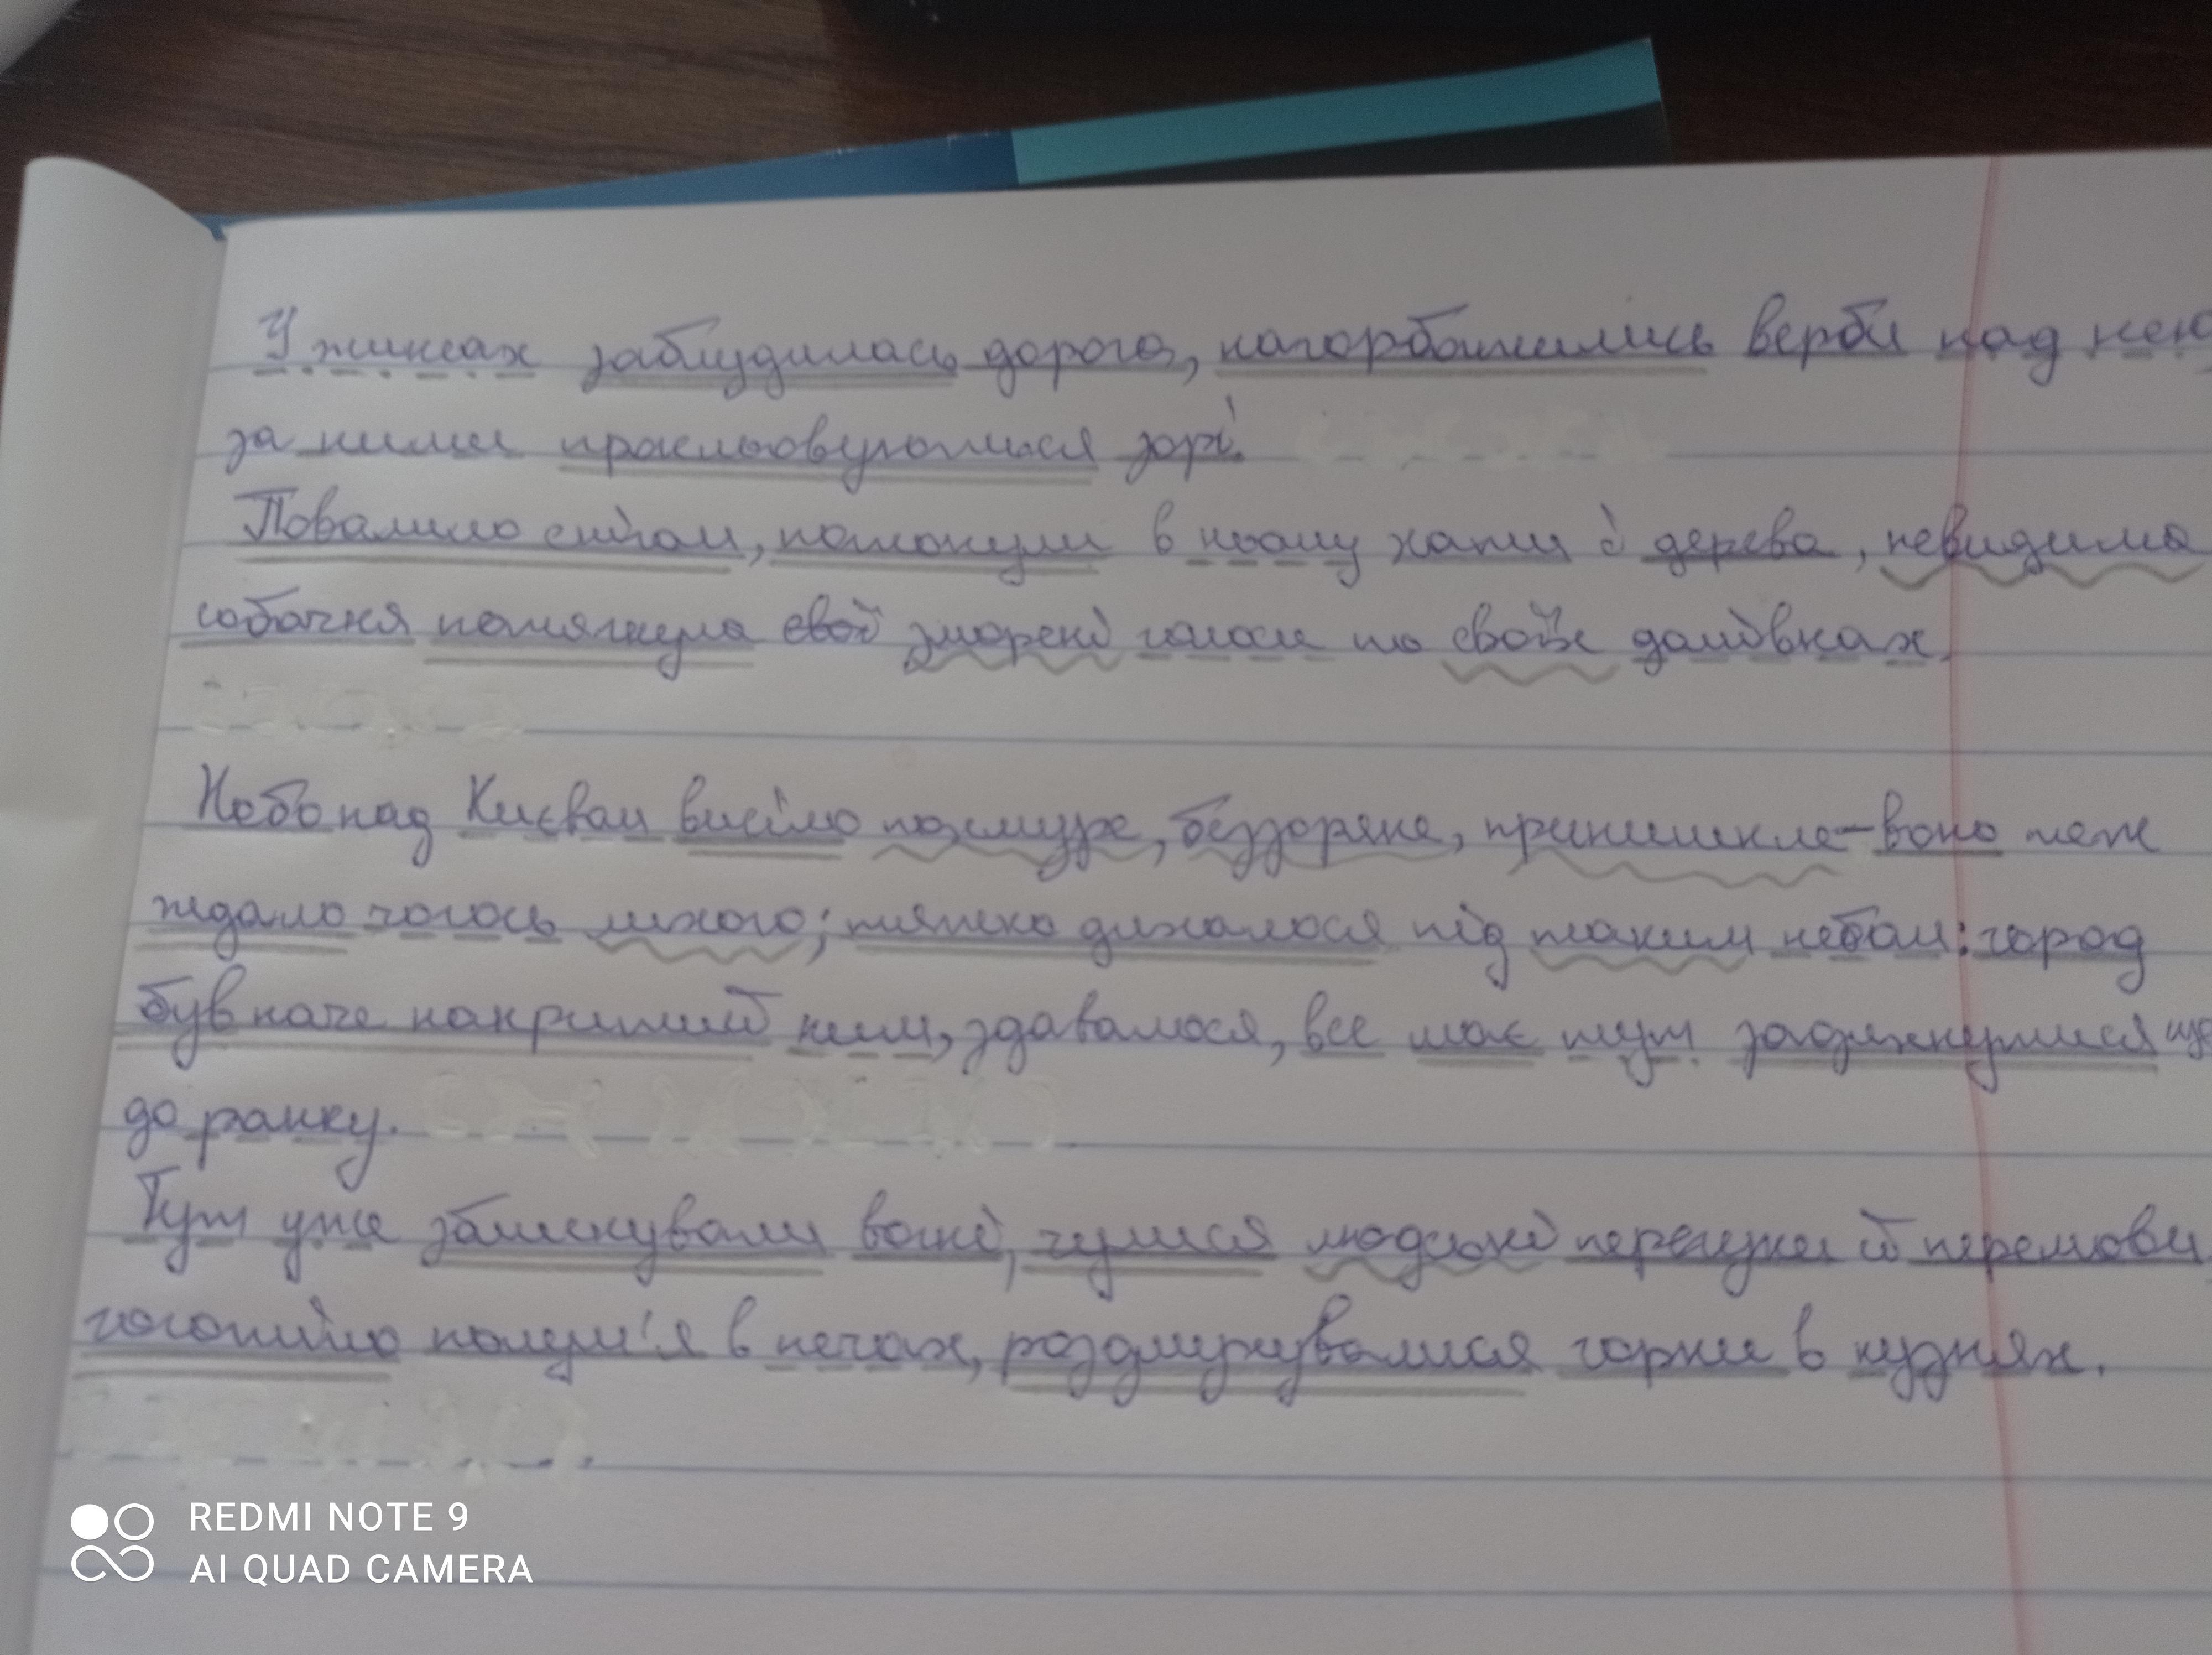 У житах заблудилась дорога, нагорбатились верби над нею
за ними прокльовуються зорі.
Повалило снігом, потонули в ньому хати і дерева, невидима
собачня потягнула свої зморені голоси по своїх домівках.
Небо над Києвом висіло похмуре, беззоряне, принишкле – воно теж
ждало чогось лихого; тяжко дихалося під таким небом: город
був наче накритий ним, здавалося, все має тут задихнутися
до ранку.
Тут уже заблискували вогні, чулися людські перегуки й перемови
гоготіло полум'я в печах, роздмухувалися горни в кузнях.
REDMI NOTE 9
AI QUAD CAMERA